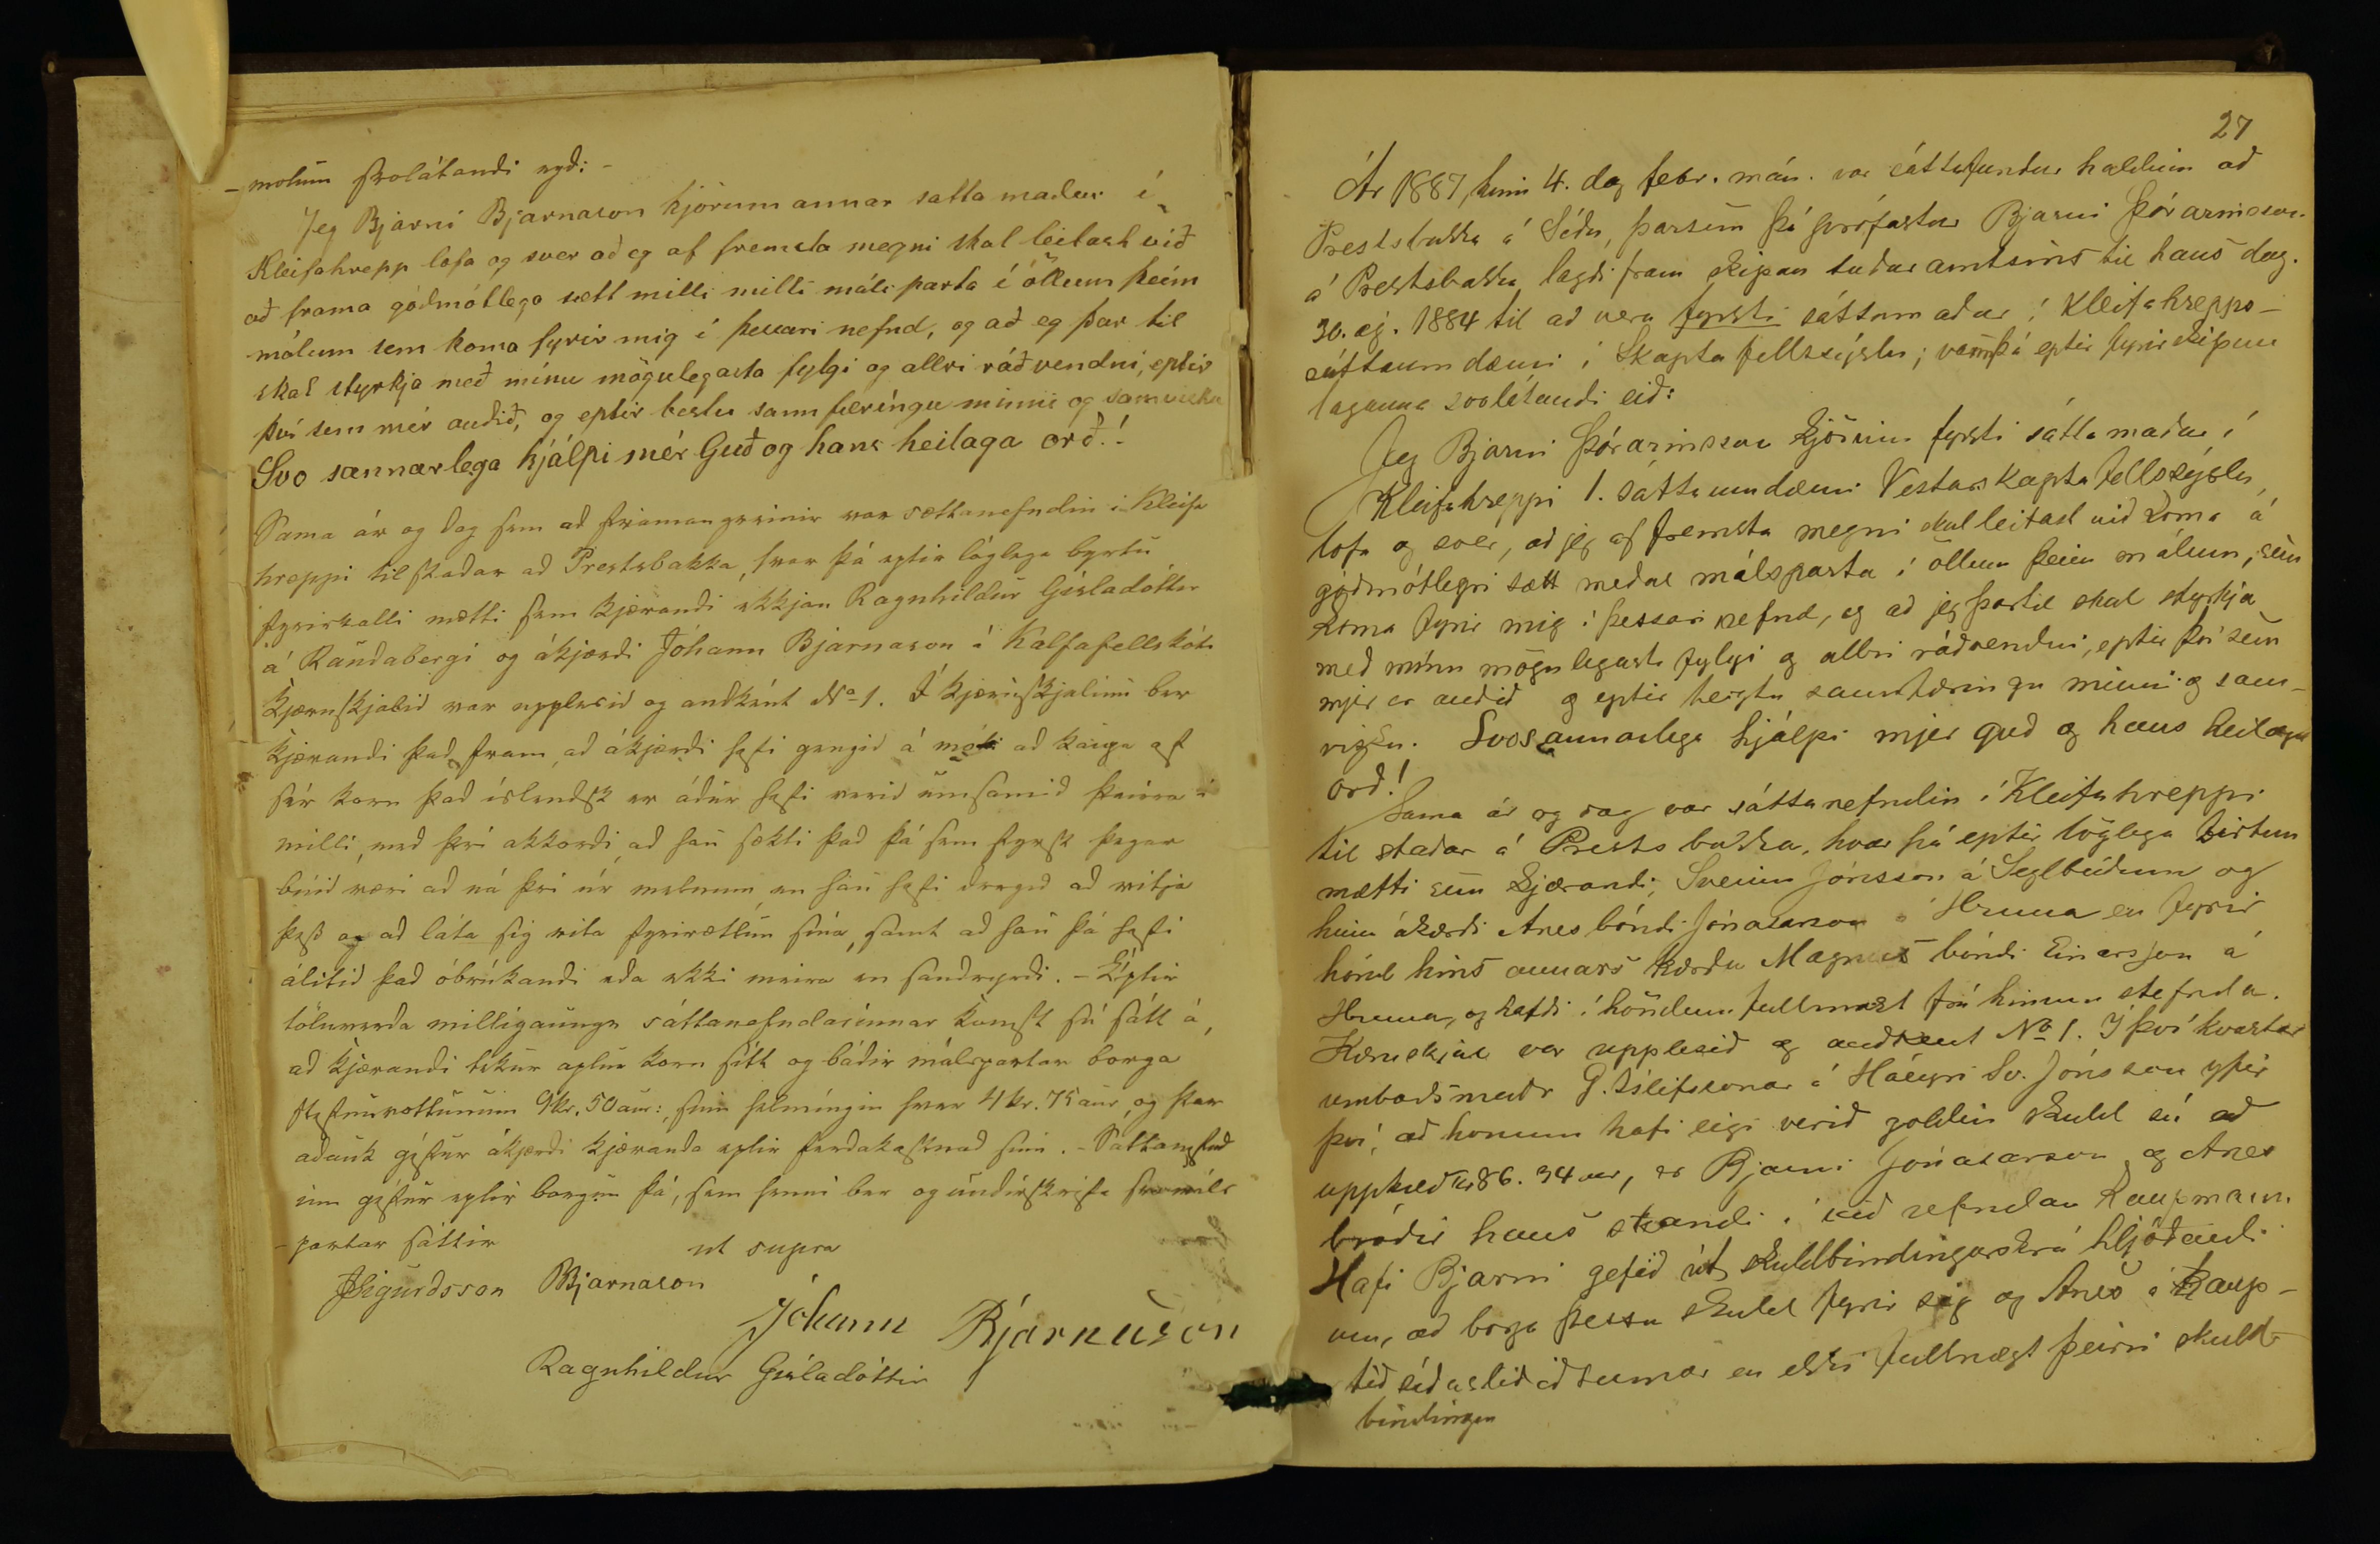 -mælum svolátandi eyð: -
Jeg Bjarni Bjarnason kjörinn annar satta maður í
Kleifahrepp lofa og sver að eg af fremsta megni skal leitast við
að frama góðmótlega sætt milli milli máls parta í öllum þeim
málum sem koma fyrir mig í þessari nefnd, og að eg þar til
skal styrkja með mínu mögulegasta fylgi og allri ráðvendni, eptir
því sem mér auðið, og eptir bestu sannfæríngu minni og samvisku
Svo sannarlega hjálpi mér Guð og hans heilaga orð!
Sama ár og dag sem að framan greinir var sættanefndin í Kleifa
hreppi til staðar að Prestsbakka, hvar þá eptir löglega byrtu
fyrirkalli mætti sem kjærandi ekkjan Ragnhildur Gísladóttir
á Rauðabergi og ákjærði Jóhann Bjarnason á Kálfafellskoti
Kjæruskjalið var upplesið og auðkent No 1. Í kjæruskjalinu ber
kjærandi það fram, að ákjærði hafi gengið á móti að kaupa af
sér korn það íslendsk er áður hafi verið umsamið þeirra á
milli, með því akkorði, að hún sækti það þá sem fyrsk þegar
búið væri að ná því úr melnum, en hún hafi dregið að vitja
þess og að láta sig vita fyrirætlun sína, samt að hún þá hafi
álitið það óbrúkandi eða ekki meira en sandorpið. - Eptir
töluverða milligaungu sáttanefndarinnar komst sú sátt á,
að kjærandi tekur aptur korn sitt og báðir málspartar borga
stefnuvottunum 9kr. 50aur:, sinn helmíngin hver 4kr. 75aur, og þar
aðauk gefur ákjærði kjæranda eptir ferðakostnað sinn. - Sáttanefnd
inn gefur eptir borgun þá, sem henni ber og undirskrifa svo máls
-partar sáttir
ut supra
JSigurdsson BBjarnason
Jóhann Bjarnason
Ragnhildur Gísladóttir
27
Ár 1887, hinn 4. dag febr. mán. var sáttafundur haldinn að
Prestsbakka á Síðu, þarsem þá prófastur Bjarni Þórarinsson
á Prestsbakka lagði fram skipan suðuramtsins til hans dag.
30. ág. 1884 til að vera fyrsti sáttamaður í Kleifahrepps-
sáttaumdæmi í Skaptafellssýslu; vann þá eptir fyrirskipun
laganna svolátandi eið:
Jeg Bjarni Þórarinsson kjörinn fyrsti sáttamaður í
Kleifahreppi 1. sáttaumdæmi Vesturskaptafellssýslu,
lofa og sver, að jeg af fremsta megni skal leitast við koma á
góðmótlegri sætt meðal málsparta í öllum þeim málum, sem
koma fyrir mig í þessari nefnd, og að jeg þartil skal styrkja
með mínu mögulegasta fylgi og allri ráðvendni, eptir því sem
mjer er auðið og eptir beztu sannfæringu minni og sam-
vizku. Svo sannarlega hjálpi mjer guð og hans heilaga
orð!
Sama ár og dag var sáttanefndin í Kleifahreppi
til staðar á Prestsbakka, hvar þá eptir löglega birtum
mætti sem kjærandi, Sveinn Jónsson á Seglbúðum og
hinn ákærði Anes bóndi Jónatarson á Hruna en fyrir
hönd hins annars kærða Magnus bóndi Einarsson á
Hruna, og hafði í höndum fullmagt frá hinum stefnda.
Kæruskjal var upplesið og auðkent No 1. Í því kvartar
umboðsmaðr G. Ísleifssonar á Háeyri Sv. Jónsson yfir
því, að honum hafi eigi verið goldin skuld sú að
upphæð kr 86. 34 aur, er Bjarni Jónatarson og Anes
bróðir hans standi í við nefndan kaupmann.
Hafi Bjarni gefið út skuldbindingarskrá hljóðandi
um, að borga þessa skuld fyrir sig og Anes í kaup-
tíð síðastliðið sumar en ekki fullnægt þeirri skuld-
bindingu